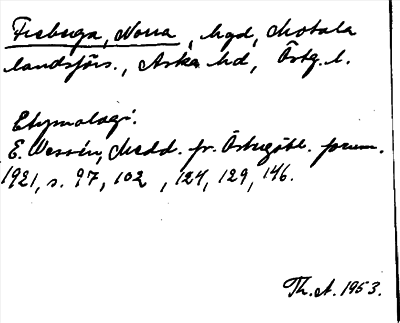 Freberga, Norra, hgd, Motala
landsförs., Aska hd, Östg. l.
Etymologi:
E. Wessén, Medd. fr. Östergötl. fornm.
1921, s. 97, 102, 124, 129, 146.
Th. A. 1953.